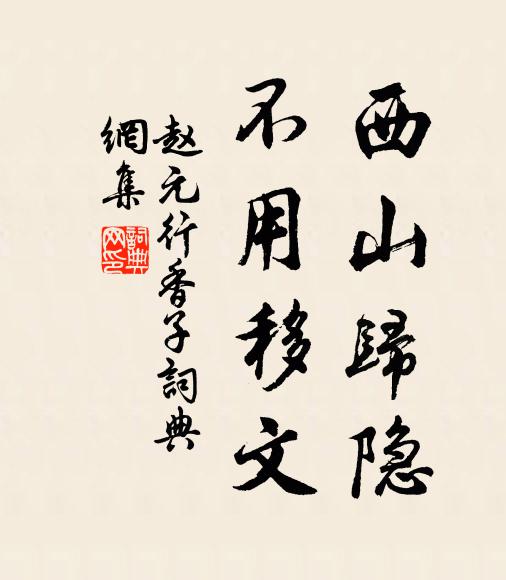 西山歸隐
不用移文
赵元行香子詞典
網集
詞典
网印